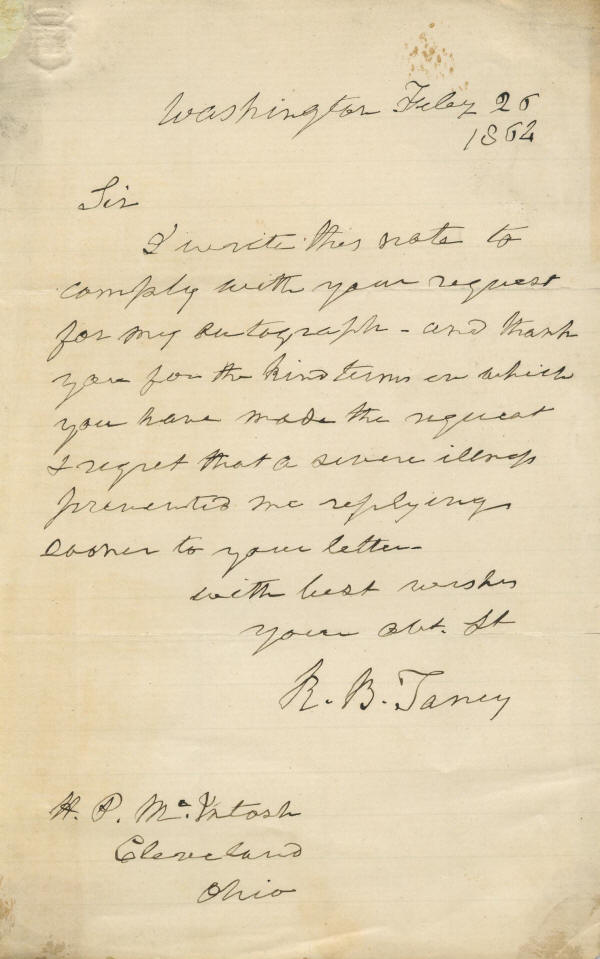 Washington Feby 26
1862
Sir
I write this note to
comply with your request
for my autograph - and thank
you for the kind terms in which
you have made the request
I regret that a severe illness
prevented me replying
sooner to your letter -
with best wishes
your obt. St
R. B. Taney
H. P. McIntosh
Cleveland
Ohio